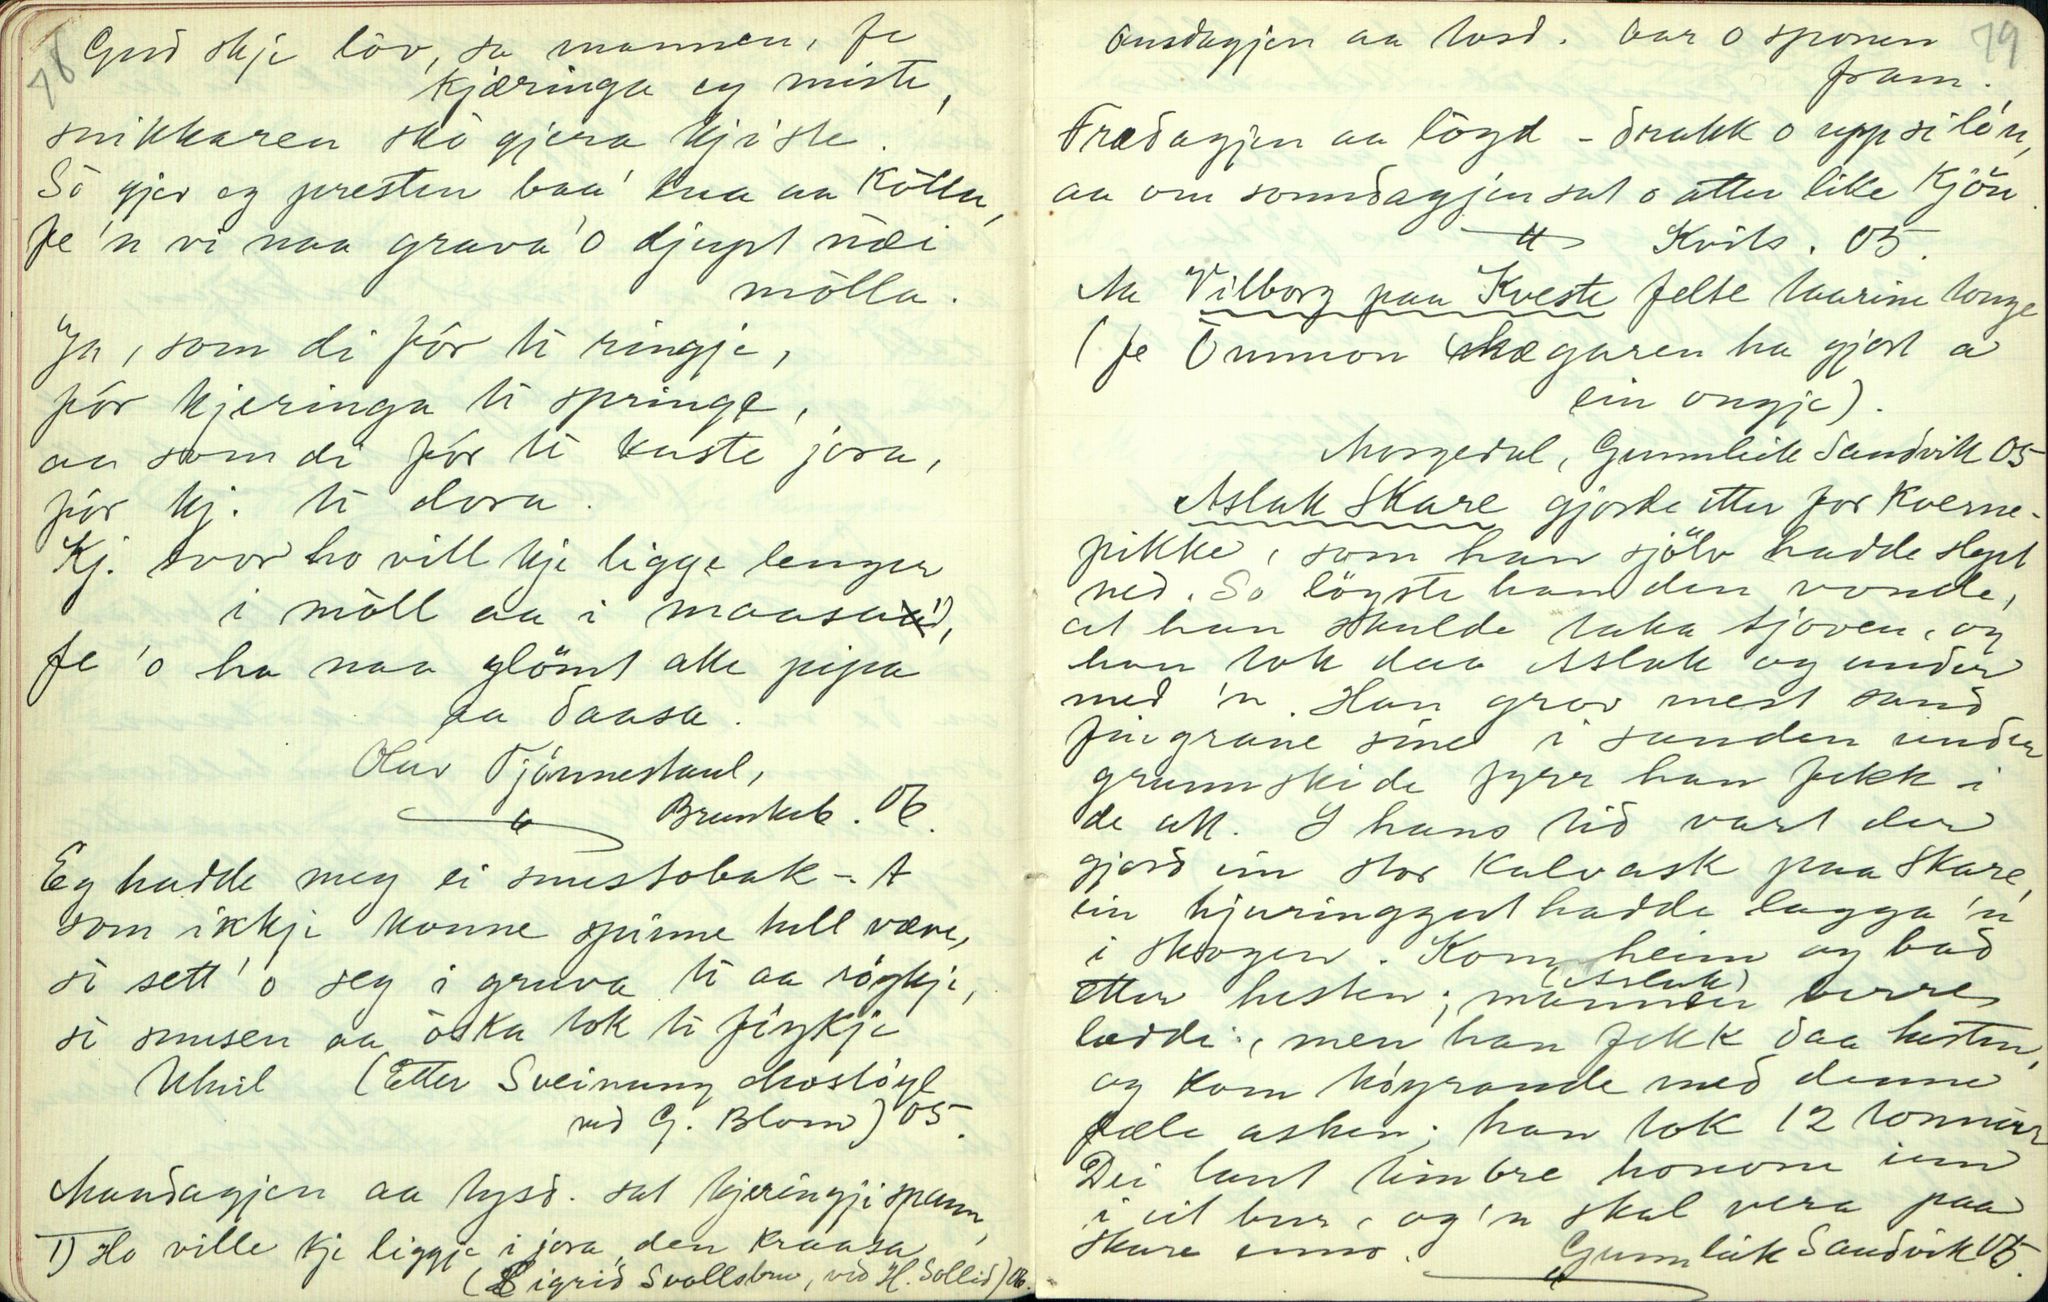 78
Gud skje lòv, sa mannen, fe
kjæringa eg miste,
snikkaren skò gjera kjiste.
Sò gjev eg presten baa' kua aa kòlla,
fe 'n vi naa grava 'o djupt næi
mòlla.
Ja, som di fór ti ringje,
fór kjeringa ti springe,
aa som di fór ti kaste jora,
fór kj. ti dora.
Kj. svor ho vill kje ligge lenger
i mòll aa i maasa 1),
fe 'o ha naa glömt att pipa
aa daasa.
Olav Tjönnestaul,
Brunkeb. 06.
Eg hadde meg ei snustobak - t
som ikkje konne spinne hell væve,
sì sett' o seg i gruva ti aa röykje,
sì snusen aa òska tok ti föykje
(Etter Sveinung
ved G. Blom) 05.
Maandagjen aa tysd. sat kjeringji spann,
1) Ho ville kje liggje i jora, den kraasa
(Sigrid Svallsbru, ved H. Sollid) 06.
79
Onsdagjen aa tosd. bar o sponen
fram.
Fredagjen aa löyd - drakk o upp si lön,
aa om sonndagjen sat o atter like kjön.
Kvits. 05.
Aa Vilborg paa Kveste felte taarine tonge
(fe Ommon skægaren ha gjort a
ein ongje).
Morgedal, Gunnleik Sandvik 05
Aslak Skare gjorde etter for Kverne-
pikke, som han sjölv hadde slept
ned. So löyste han den vonde,
at han skulde taka tjoven, og
han tok daa Aslak og under
med 'n. Han grov mest sund
fingrane sine i sanden under
grunnskide fyrr han fekk i
de att. I hans tid vart der
gjord ein stor Kalvask paa Skare,
ein hjuringgut hadde lagga 'n
i skogen. Kom heim og bad
(Aslak)
etter hesten; mannen berre
lædde, men han fekk daa hesten,
og kom köyrande med denne
fæle asken; han tok 12 tonnur
Dei laut timbre honom inn
i eit bur, og 'n skal vera paa
Skare enno. Gunnleik Sandvik 05.